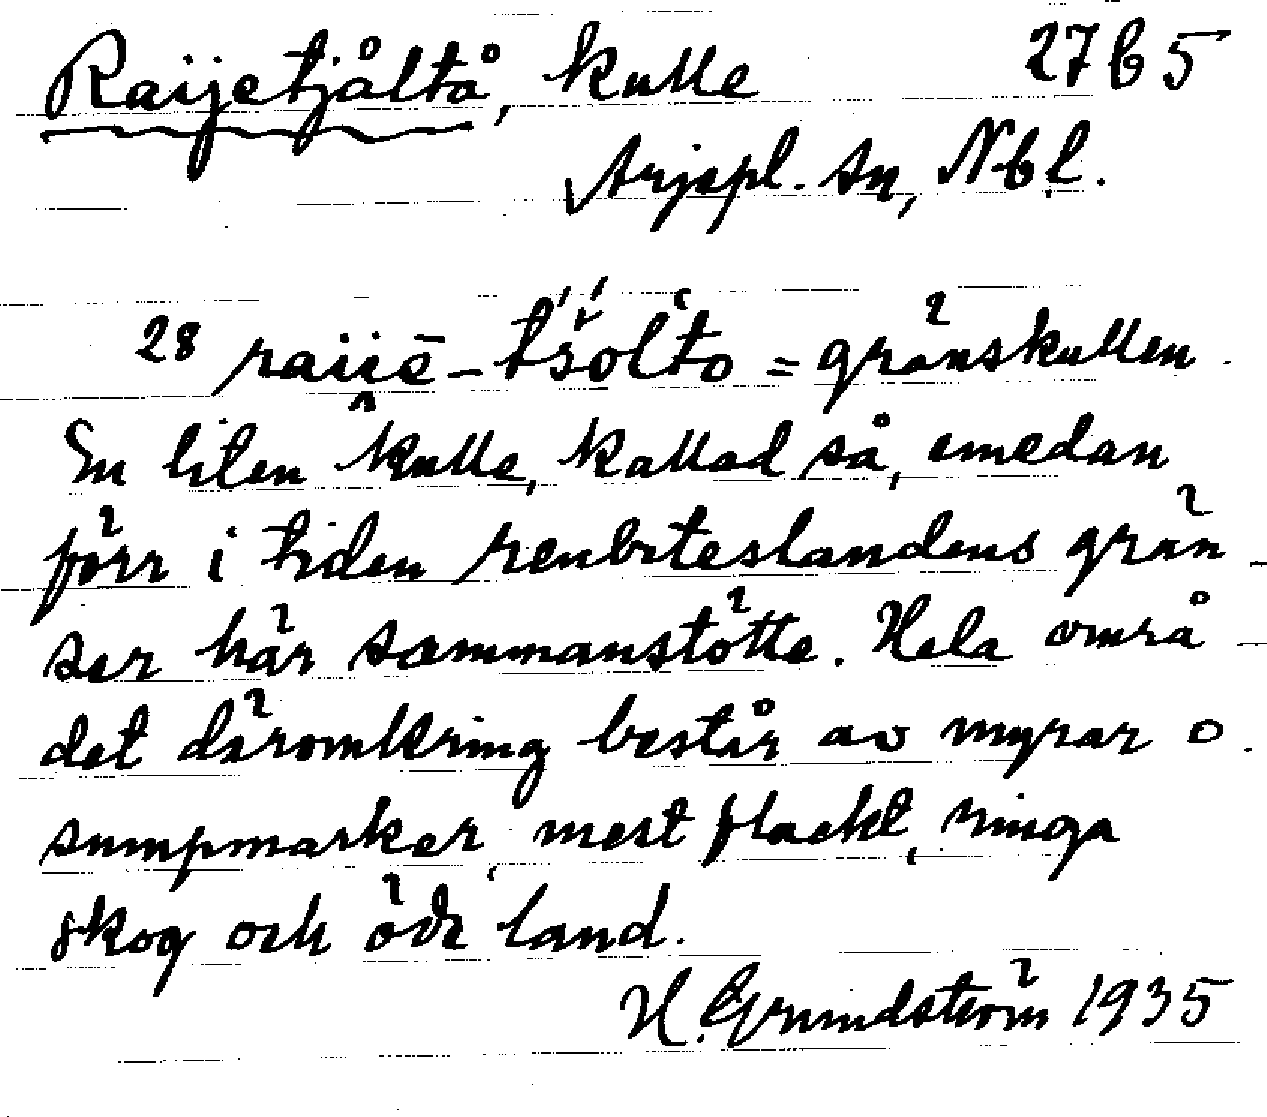 Raijetjåltå, kulle 27b5
Arjepl. sn, Nbl.
28 raiiē-t́š́ōlt́o = gränskullen.
En liten kulle, kallad så, emedan
förr i tiden renbeteslandens grän-
ser här sammanstötte. Hela områ-
det däromkring består av myrar o.
sumpmarker, mest flackt, ringa
skog och öde land.
H. Grundström 1935